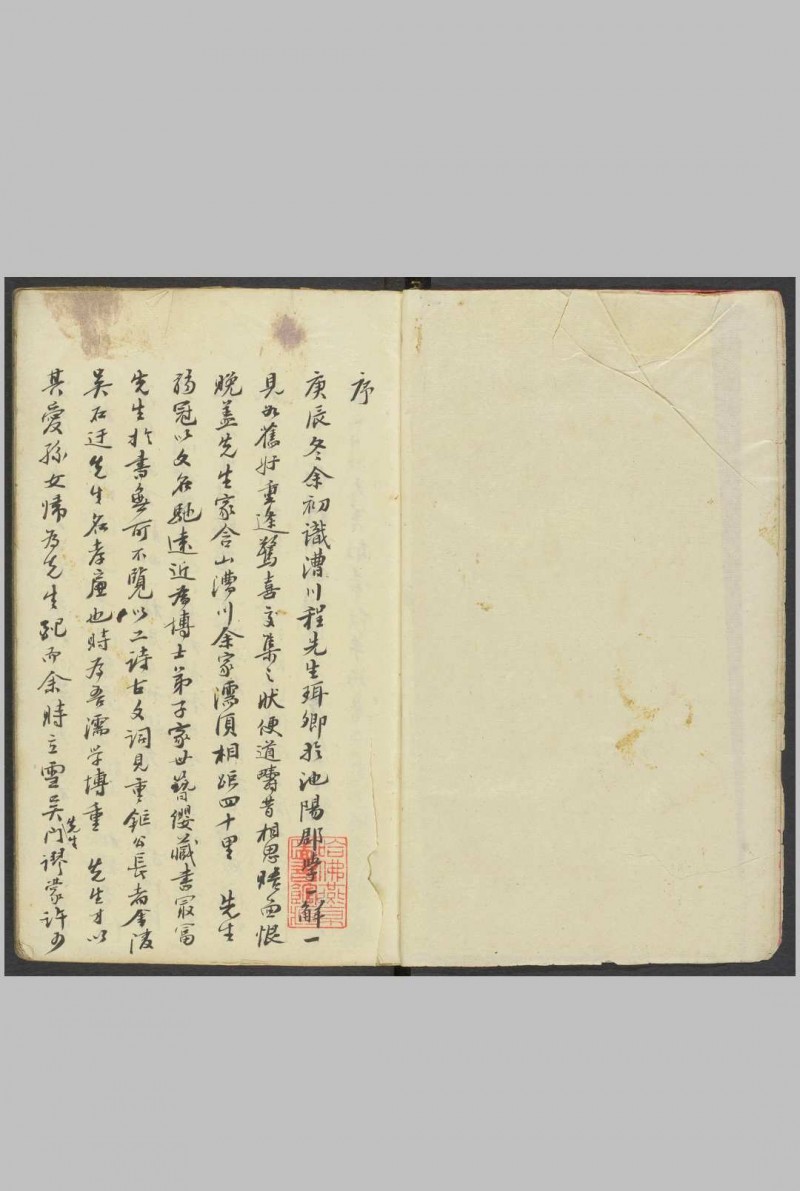 序
庚辰冬余初識漕川程先生珥卿於池陽郡學一解一
見如舊好重逢驚喜交集之狀便道疇昔相思晤面恨
晚盖先生家含山漕川余家濡須相距四十里 先生
弱冠以文名馳遠近為博士弟子家世簪纓藏書最富
先生於書無所不覽以工詩古文詞見重鉅公長者金陵
吳石迂先生名孝廉也時為吾濡学博重 先生才以
其愛孫女歸為先生配而余時立雪吳門先生謬蒙許可
哈佛燕京圖書館